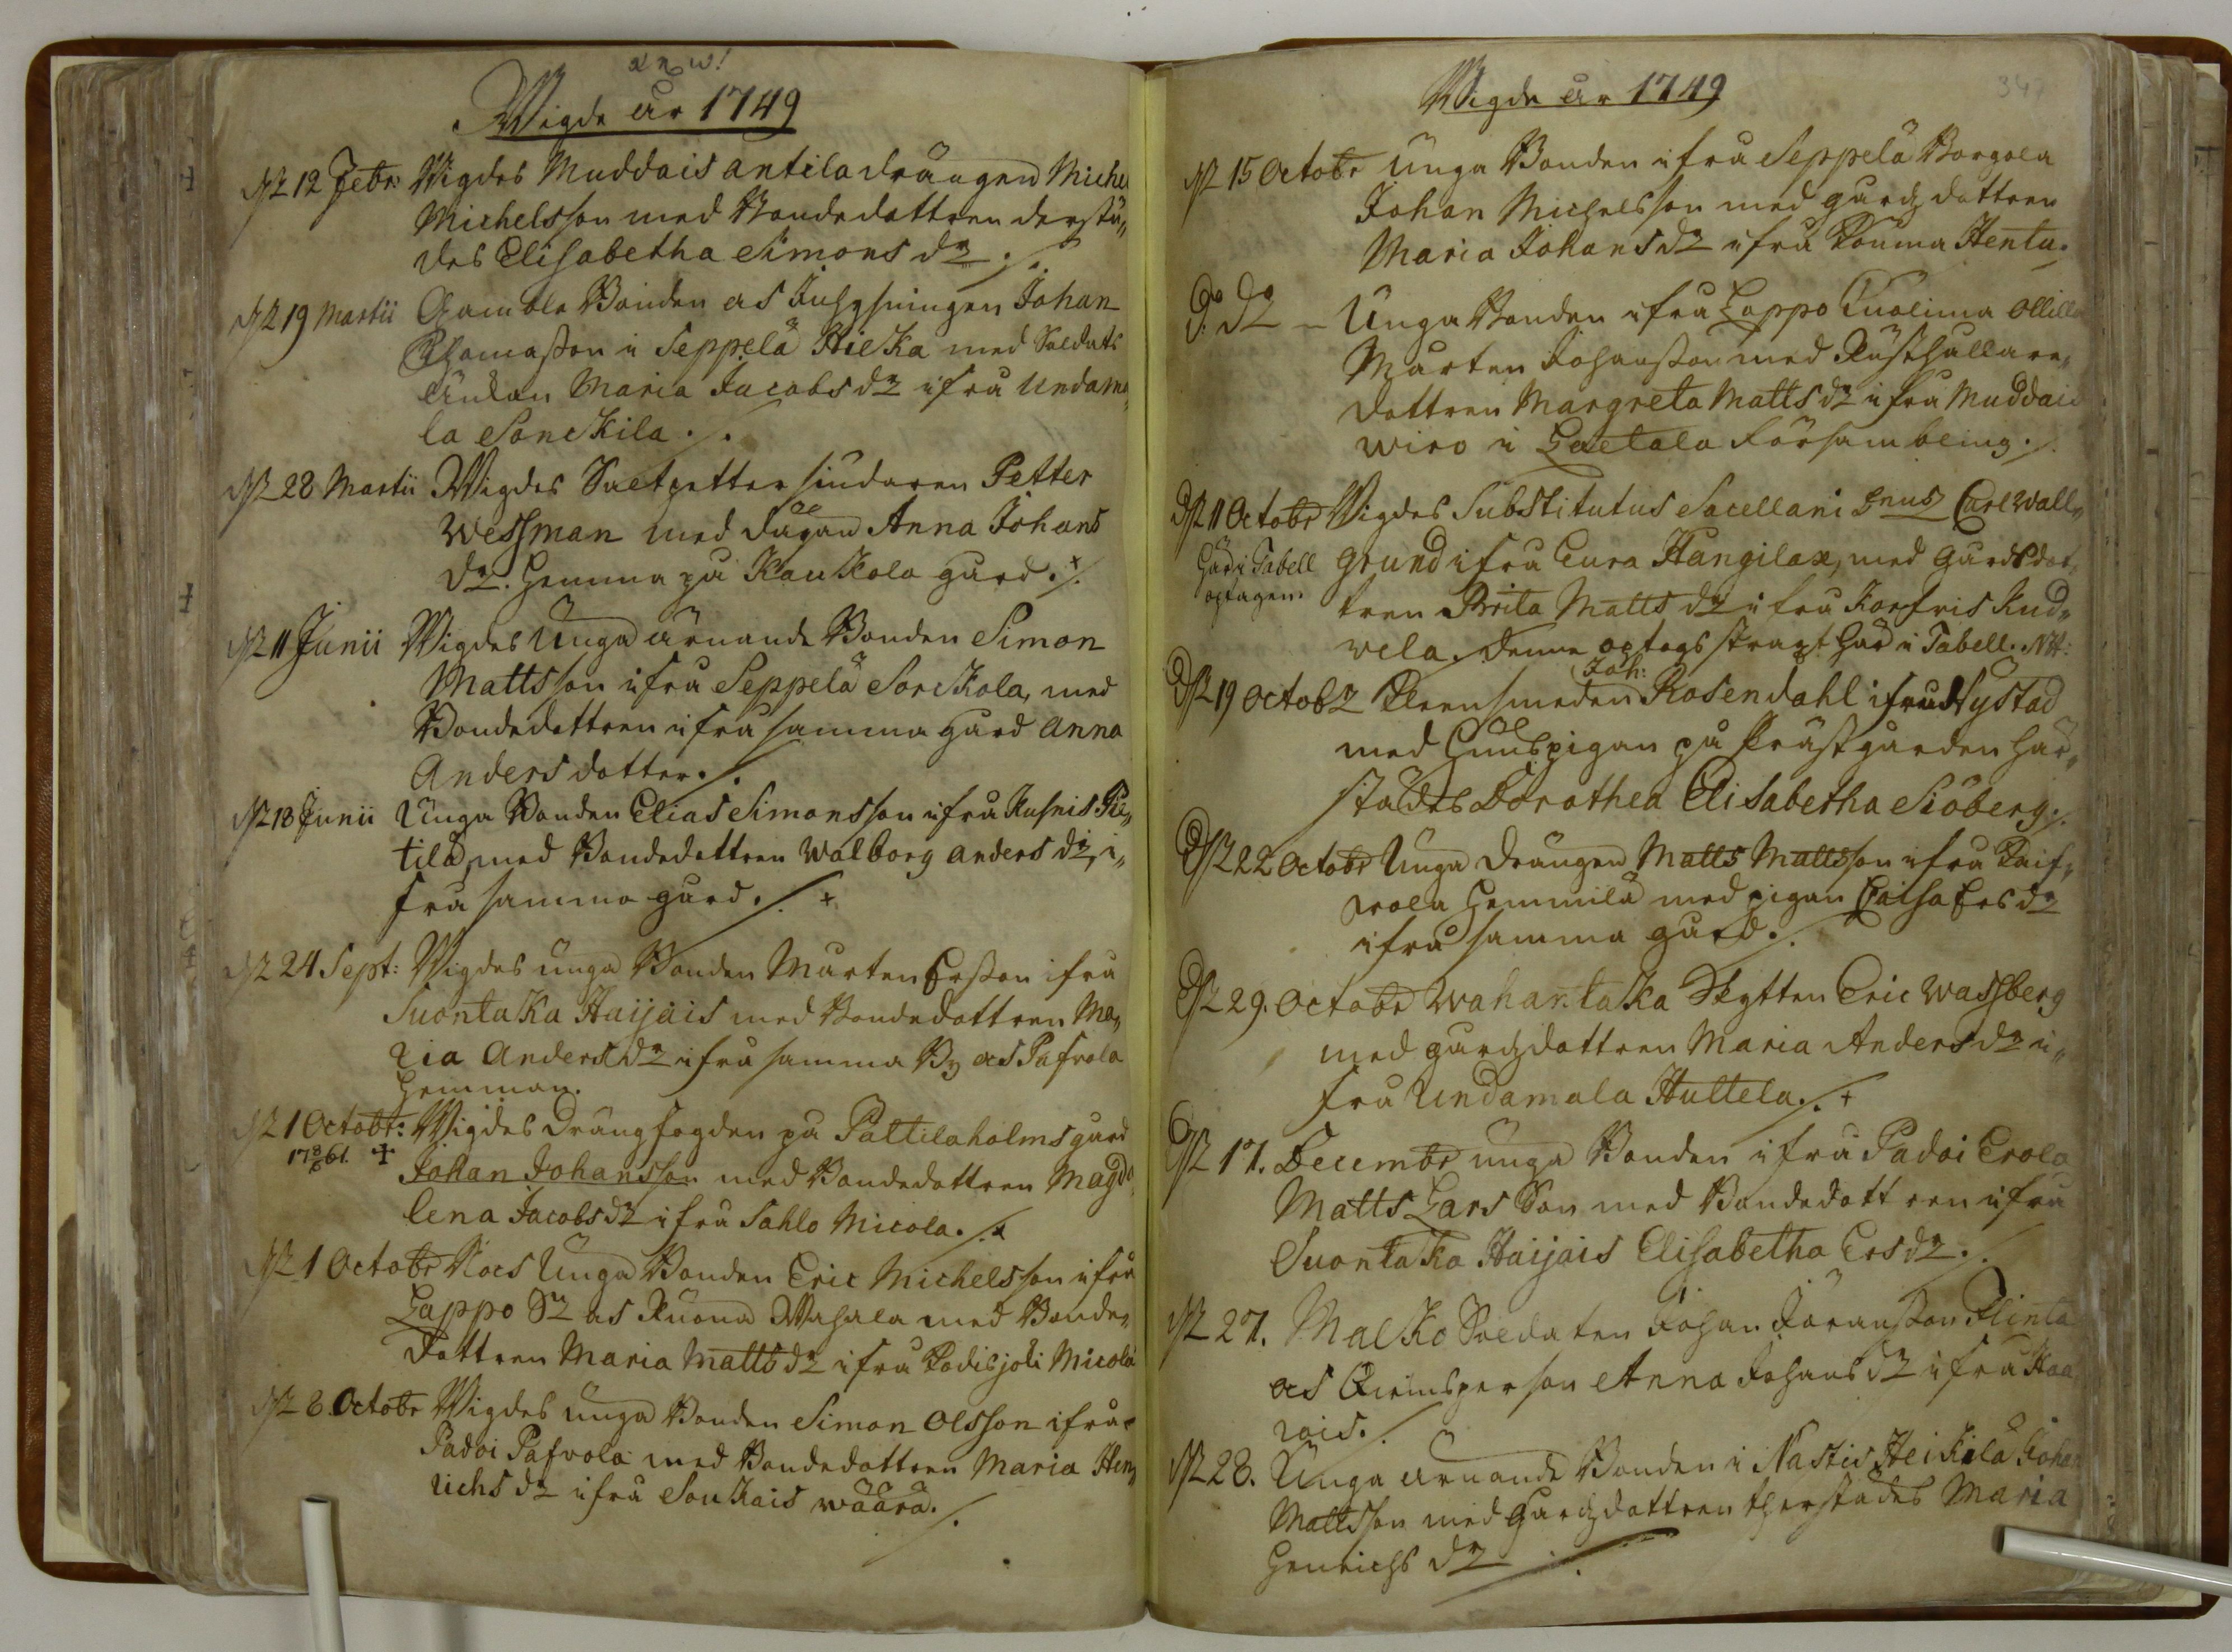 Wigde år 1749
Dn 12 Febr: Wigdes Muddais Antila drängen Michel
Michelsson med Bondedottren derstä„
des Elisabetha Simons dr ./.
Dn 19 Martii Gamble Bonden as Inhysningen Johan
Thomasson i Seppelä Hilka med Soldats
Änkan Maria Jacobs dr ifrå Undama„
la Sonckila ./.
Dn 28 Martii Wigdes Saletpetter siudaren Petter
Wessman med Pigan Anna Johans
dr. hemma på Kaukola gård. ./.
Dn 11 Junii Wigdes Unga ärnande Bonden Simon
Mattsson ifrå Seppelä Sorckola, med
Bondedottren ifrå samma gård Anna
Andersdotter ./.
Dn 18 Junii Unga Bonden Elias Simonsson ifrå Kusnis Pie„
tilä, med Bondedottren Walborg Anders dr, i„
frå samma gård ./. +
Dn 24 Sept: Wigdes unga Bonden Mårten Ersson ifrå
Suontaka Haijais med Bondedottren Ma„
ria Anders dr ifrå samma By as Pafvola
hemman.
Dn 1 Octobr: Wigdes Drängfogden på Pättiläholms gård
Johan Johansson med Bondedottren Magda
lena Jacobs dr ifrå Sahlo Nicola ./. +
Dn 1 Octobr Unga Bonden Eric Michelsson ifrå
Lappo Sn as Ruona Wahala med Bonde„
dottren Maria Matts dr ifrå Padisjoki Nicola
Dn 8 Octobr Wigdes unga Bonden Simon Olsson ifrå
Padoi Pafvola med Bondedottren Maria Hen„
richs dr ifrå Soukais wäärä ./.
Wigde år 1749
347
Dn 15 Octobr Unga Bonden ifrå Seppelä Borgola
Johan Michelsson med gårdz dottren
Maria Johans dr ifrå Kouma Hentu.
D: do Unga Bonden ifrå Lappo Kuolima Ollilla
Mårten Johansson med Rusthållare„
dottren Margreta Matts dr ifrå Muddais
wiro i Letala Försambling ./.
Dn 11 Octobr Wigdes Substitutus Sacellani Dnus Carl Wall„
grund ifrå Eura Kangilax, med Gårdsdot„
här i Tabell
optagen
tren Brita Matts dr ifrå Korfris Kud„
wela. Denne optogs straxt här i Tabell. NB:
Dn 19 Octobr Kleensmeden Joh: Rosendahl ifrå Nystad
med Huuspigan på Prästgården här„
städes Dorothea Elisabetha Siöberg ./.
Dn 22 Octobr Unga drängen Matts Mattsson ifrå Raif„
wola Hemmilä med pigan Caisa Ers dr
ifrå samma gård ./.
Dn 29. Octobr Wahantaka Skytten Eric Wassberg
med gårdzdottren Maria Anders dr i„
frå Undamala Huttela ./. +
Dn 17. Decembr unga Bonden ifrå Padoi Erola
Matts Lars Son med Bondedottren ifrå
Suontaka Haijais Elisabetha Ers dr ./.
Dn 27. Malko Soldaten Johan Jöransson Flinta
as Qvinsperson Anna Johans dr ifrå Haa
rois ./.
Dn 28. Unga ärnande Bonden i Nästis Heikilä Johan
Mattsson med Gårdzdottren therstädes Maria
Henrichs dr ./.